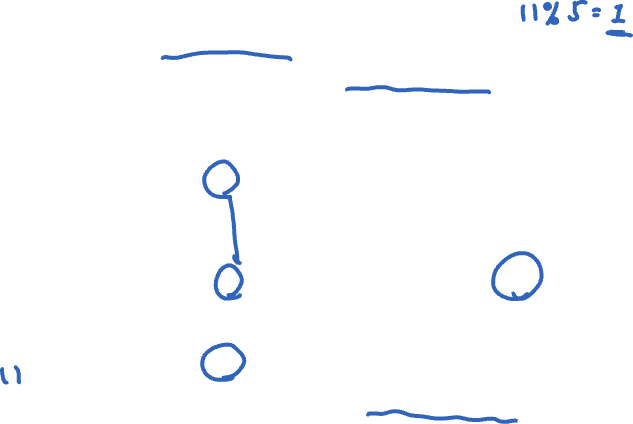 11%5=1
11